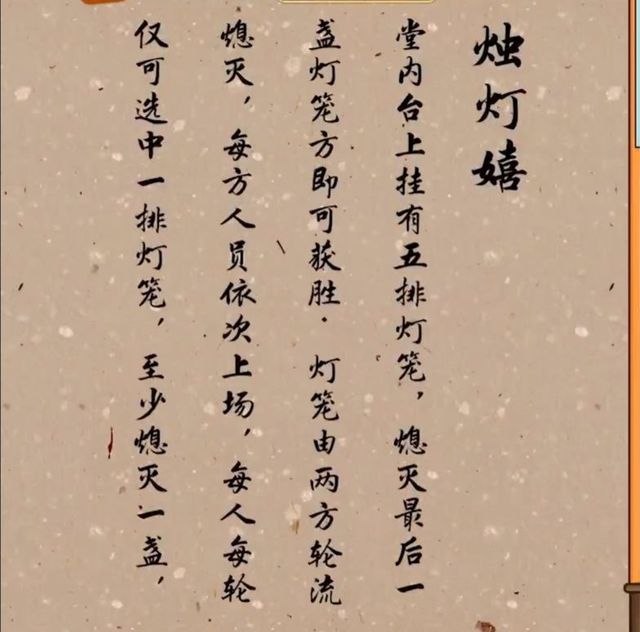 烛灯嬉
堂内台上挂有五排灯笼，熄灭最后一
盏灯笼方即可获胜．灯笼由两方轮流
熄灭，每方人员依次上场，每人每轮
仅可选中一排灯笼，至少熄灭一盏，